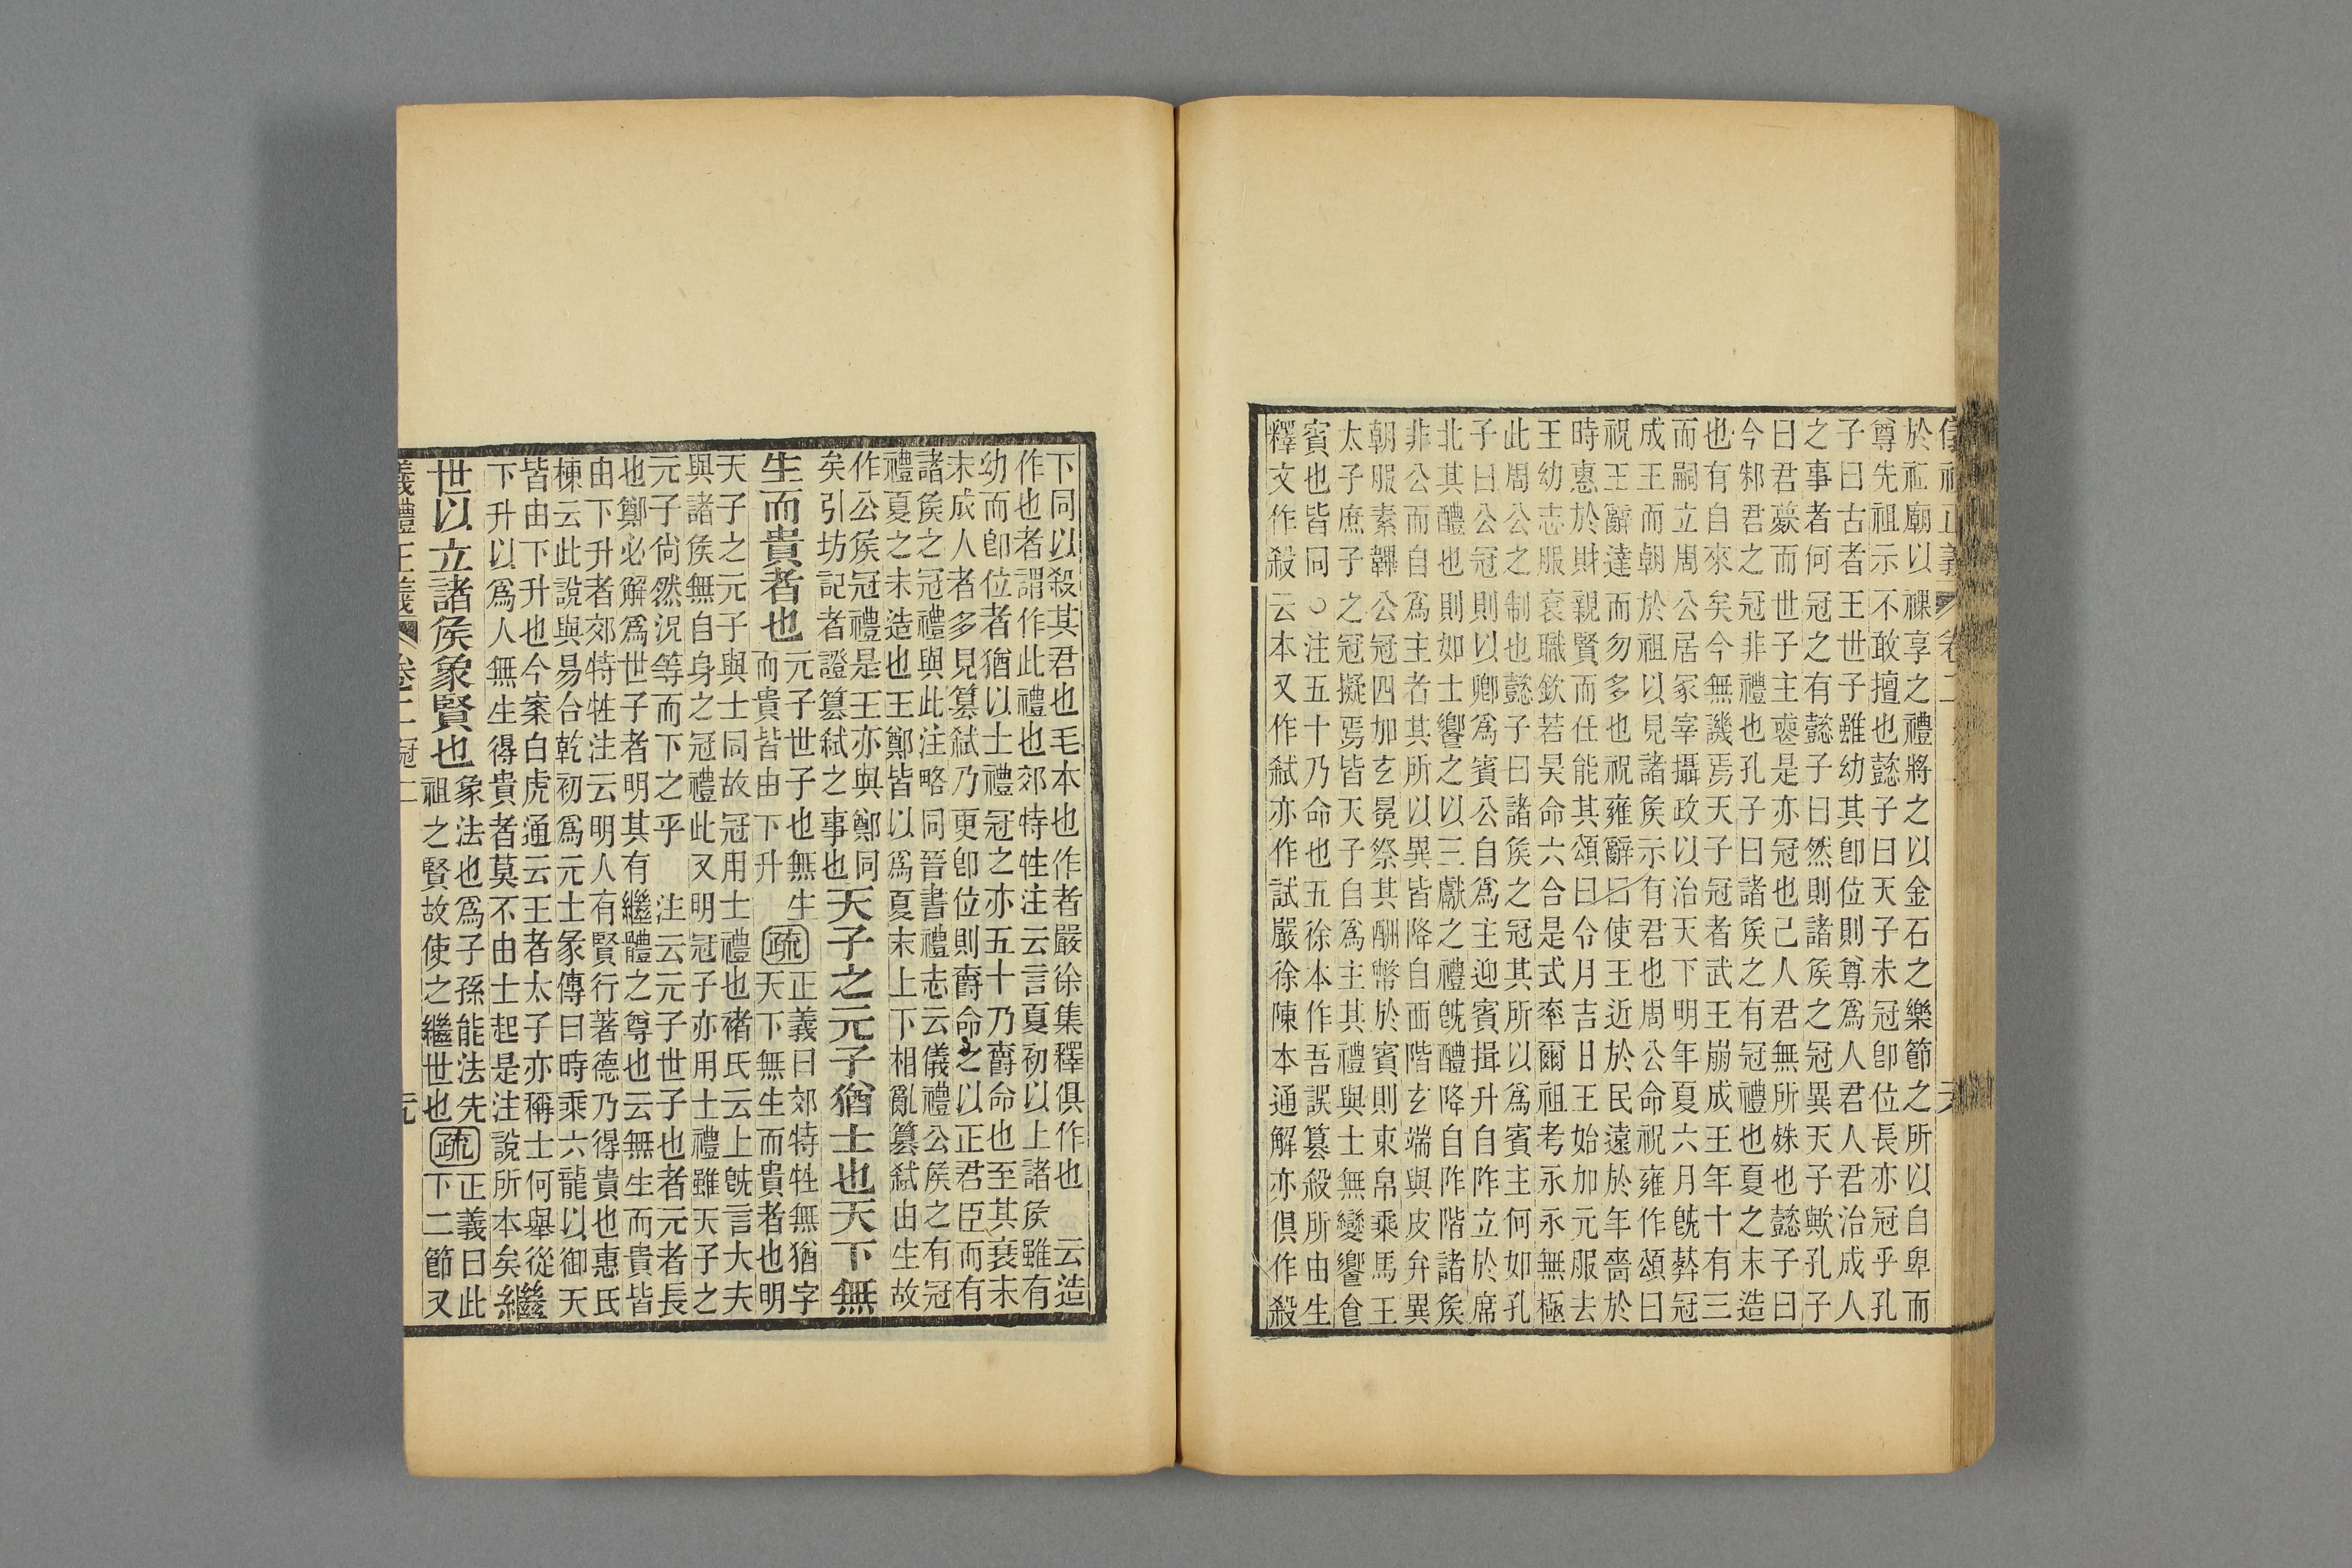 儀禮正義 卷二
於祏廟以祼享之禮將之以金石之樂節之所以自卑而
尊先祖示不敢擅也懿子曰天子未冠卽位長亦冠乎孔
子曰古者王世子雖幼其卽位則尊爲人君人君治成人
之事者何冠之有懿子曰然則諸矦之冠異天子歟孔子
曰君薨而世子主喪是亦冠也已人君無所殊也懿子曰
今邾君之冠非禮也孔子曰諸矦之有冠禮也夏之末造
也有自來矣今無譏焉天子冠者武王崩成王年十有三
而嗣立周公居冢宰攝政以治天下明年夏六月旣葬冠
成王而朝於祖以見諸矦示有君也周公命祝雍作頌曰
祝王辭達而勿多也祝雍辭曰使王近於民遠於年嗇於
時惠於財親賢而任能其頌曰令月吉日王始加元服去
王幼志服衮職欽若昊命六合是式率爾祖考永永無極
此周公之制也懿子曰諸矦之冠其所以爲賓主何如孔
子曰公冠則以卿爲賓公自爲主迎賓揖升自阼立於席
北其醴也則如士饗之以三獻之禮旣醴降自阼階諸矦
非公而自爲主者其所以異皆降自西階玄端與皮弁異
朝服素韠公冠四加玄冕祭其酬幣於賓則束帛乘馬王
太子庶子之冠擬焉皆天子自爲主其禮與士無變饗食
賓也皆同○注五十乃命也五徐本作吾誤篡殺所由生
釋文作殺云本又作弑亦作試嚴徐陳本通解亦俱作殺
下同以殺其君也毛本也作者嚴徐集釋俱作也 云造
作也者謂作此禮也郊特牲注云言夏初以上諸矦雖有
幼而卽位者猶以士禮冠之亦五十乃爵命也至其衰末
未成人者多見篡弑乃更卽位則爵命之以正君臣而有
諸矦之冠禮與此注略同晉書禮志云儀禮公矦之有冠
禮夏之末造也王鄭皆以爲夏末上下相亂篡弑由生故
作公矦冠禮是王亦與鄭同
矣引坊記者證篡弑之事也
天子之元子猶士也天下無
生而貴者也
元子世子也無生
而貴皆由下升
疏
正義曰郊特牲無猶字
天下無生而貴者也明
天子之元子與士同故冠用士禮也褚氏云上旣言大夫
與諸矦無自身之冠禮此又明冠子亦用士禮雖天子之
元子尙然況等而下之乎 注云元子世子也者元者長
也鄭必解爲世子者明其有繼體之尊也云無生而貴皆
由下升者郊特牲注云明人有賢行著德乃得貴也惠氏
棟云此說與易合乾初爲元士彖傳曰時乘六龍以御天
皆由下升也今案白虎通云王者太子亦稱士何舉從
下升以爲人無生得貴者莫不由士起是注說所本矣
繼
世以立諸矦象賢也
象法也爲子孫能法先
祖之賢故使之繼世也
疏
正義曰此
下二節又
儀禮正義 卷二 冠二